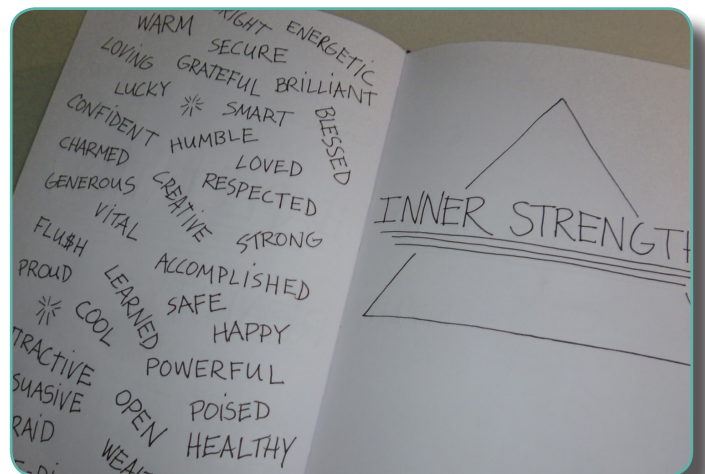 RIGHT ENERGETIC
WARM SECURE
LOVING GRATEFUL BRILLIANT
LUCKY SMART BLESSED
CONFIDENT HUMBLE
CHARMED LOVED
GENEROUS CREATIVE RESPECTED
VITAL STRONG
FLU$H ACCOMPLISHED
PROUD LEARNED SAFE
COOL HAPPY
TRACTIVE POWERFUL
SUASIVE OPEN POISED
RAID HEALTHY
WEAL
INNER STRENGTH